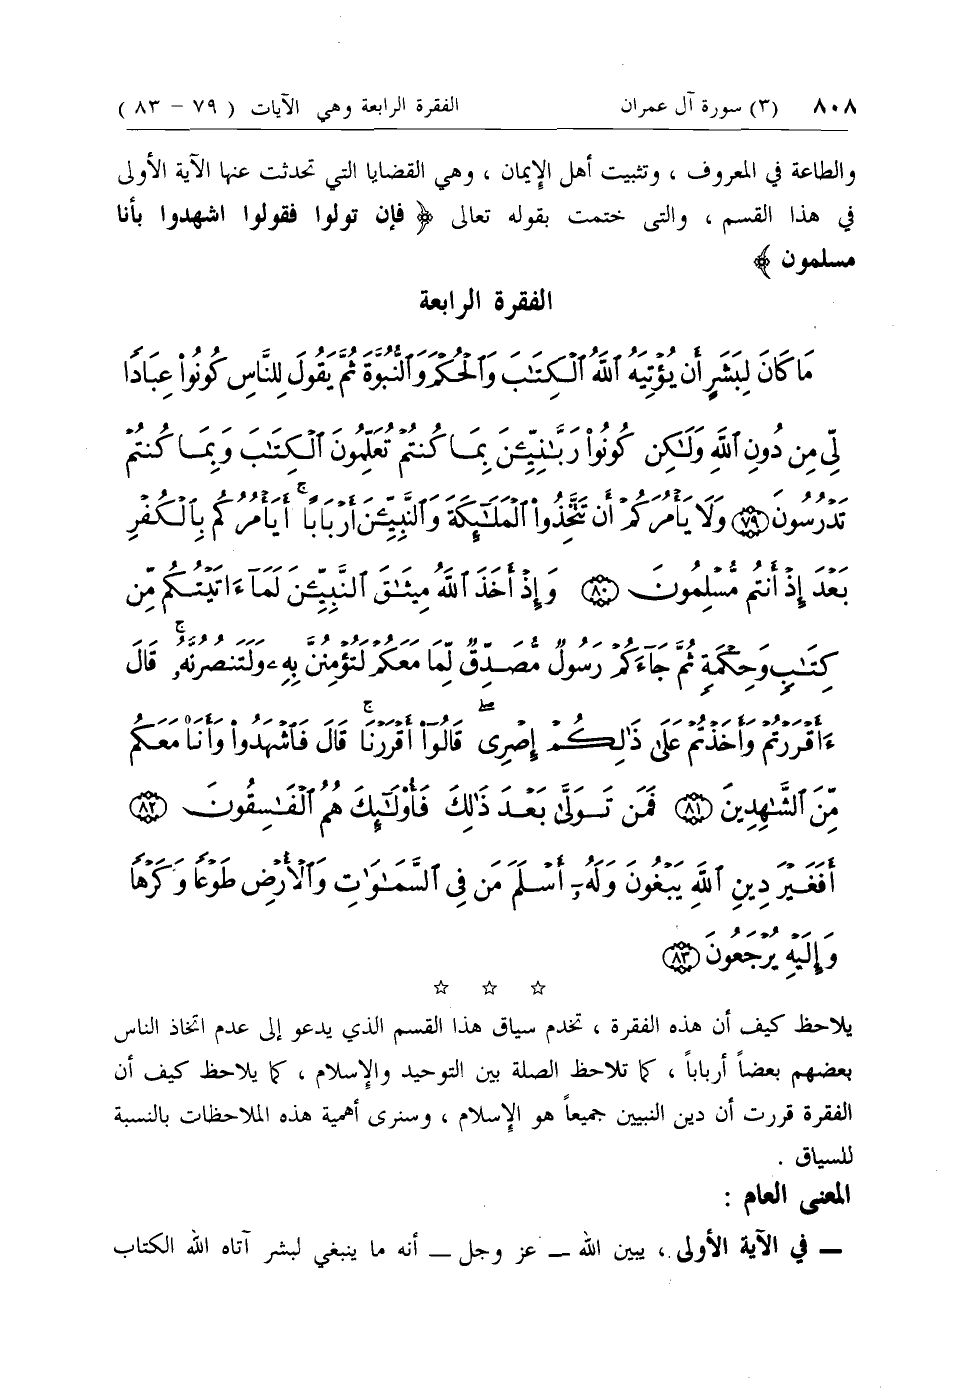 ٨٠٨ (٣) سورة آل عمران الفقرة الرابعة وهي الآيات ( ٧٩ – ٨٣ )
والطاعة في المعروف ، وتثبيت أهل الإيمان ، وهي القضايا التي تحدثت عنها الآية الأولى
في هذا القسم ، والتى ختمت بقوله تعالى ﴿ فإن تولوا فقولوا اشهدوا بأنا
مسلمون ﴾
الفقرة الرابعة
مَا كَانَ لِبَشَرٍ أَن يُؤْتِيَهُ ٱللَّهُ ٱلْكِتَٰبَ وَٱلْحُكْمَ وَٱلنُّبُوَّةَ ثُمَّ يَقُولَ لِلنَّاسِ كُونُوا۟ عِبَادًا
لِّى مِن دُونِ ٱللَّهِ وَلَٰكِن كُونُوا۟ رَبَّٰنِيِّۦنَ بِمَا كُنتُمْ تُعَلِّمُونَ ٱلْكِتَٰبَ وَبِمَا كُنتُمْ
تَدْرُسُونَ ﴿٧٩﴾ وَلَا يَأْمُرَكُمْ أَن تَتَّخِذُوا۟ ٱلْمَلَٰٓئِكَةَ وَٱلنَّبِيِّۦنَ أَرْبَابًا ۚ أَيَأْمُرُكُم بِٱلْكُفْرِ
بَعْدَ إِذْ أَنتُم مُّسْلِمُونَ ﴿٨٠﴾ وَإِذْ أَخَذَ ٱللَّهُ مِيثَٰقَ ٱلنَّبِيِّۦنَ لَمَآ ءَاتَيْتُكُم مِّن
كِتَٰبٍ وَحِكْمَةٍ ثُمَّ جَآءَكُمْ رَسُولٌ مُّصَدِّقٌ لِّمَا مَعَكُمْ لَتُؤْمِنُنَّ بِهِۦ وَلَتَنصُرُنَّهُۥ ۚ قَالَ
ءَأَقْرَرْتُمْ وَأَخَذْتُمْ عَلَىٰ ذَٰلِكُمْ إِصْرِى ۖ قَالُوٓا۟ أَقْرَرْنَا ۚ قَالَ فَٱشْهَدُوا۟ وَأَنَا۠ مَعَكُم
مِّنَ ٱلشَّٰهِدِينَ ﴿٨١﴾ فَمَن تَوَلَّىٰ بَعْدَ ذَٰلِكَ فَأُو۟لَٰٓئِكَ هُمُ ٱلْفَٰسِقُونَ ﴿٨٢﴾
أَفَغَيْرَ دِينِ ٱللَّهِ يَبْغُونَ وَلَهُۥٓ أَسْلَمَ مَن فِى ٱلسَّمَٰوَٰتِ وَٱلْأَرْضِ طَوْعًا وَكَرْهًا
وَإِلَيْهِ يُرْجَعُونَ ﴿٨٣﴾
☆ ☆ ☆
يلاحظ كيف أن هذه الفقرة ، تخدم سياق هذا القسم الذي يدعو إلى عدم اتخاذ الناس
بعضهم بعضاً أرباباً ، كما تلاحظ الصلة بين التوحيد والإسلام ، كما يلاحظ كيف أن
الفقرة قررت أن دين النبيين جميعاً هو الإسلام ، وسنرى أهمية هذه الملاحظات بالنسبة
للسياق .
المعنى العام :
– في الآية الأولى ، يبين الله – عز وجل – أنه ما ينبغي لبشر آتاه الله الكتاب